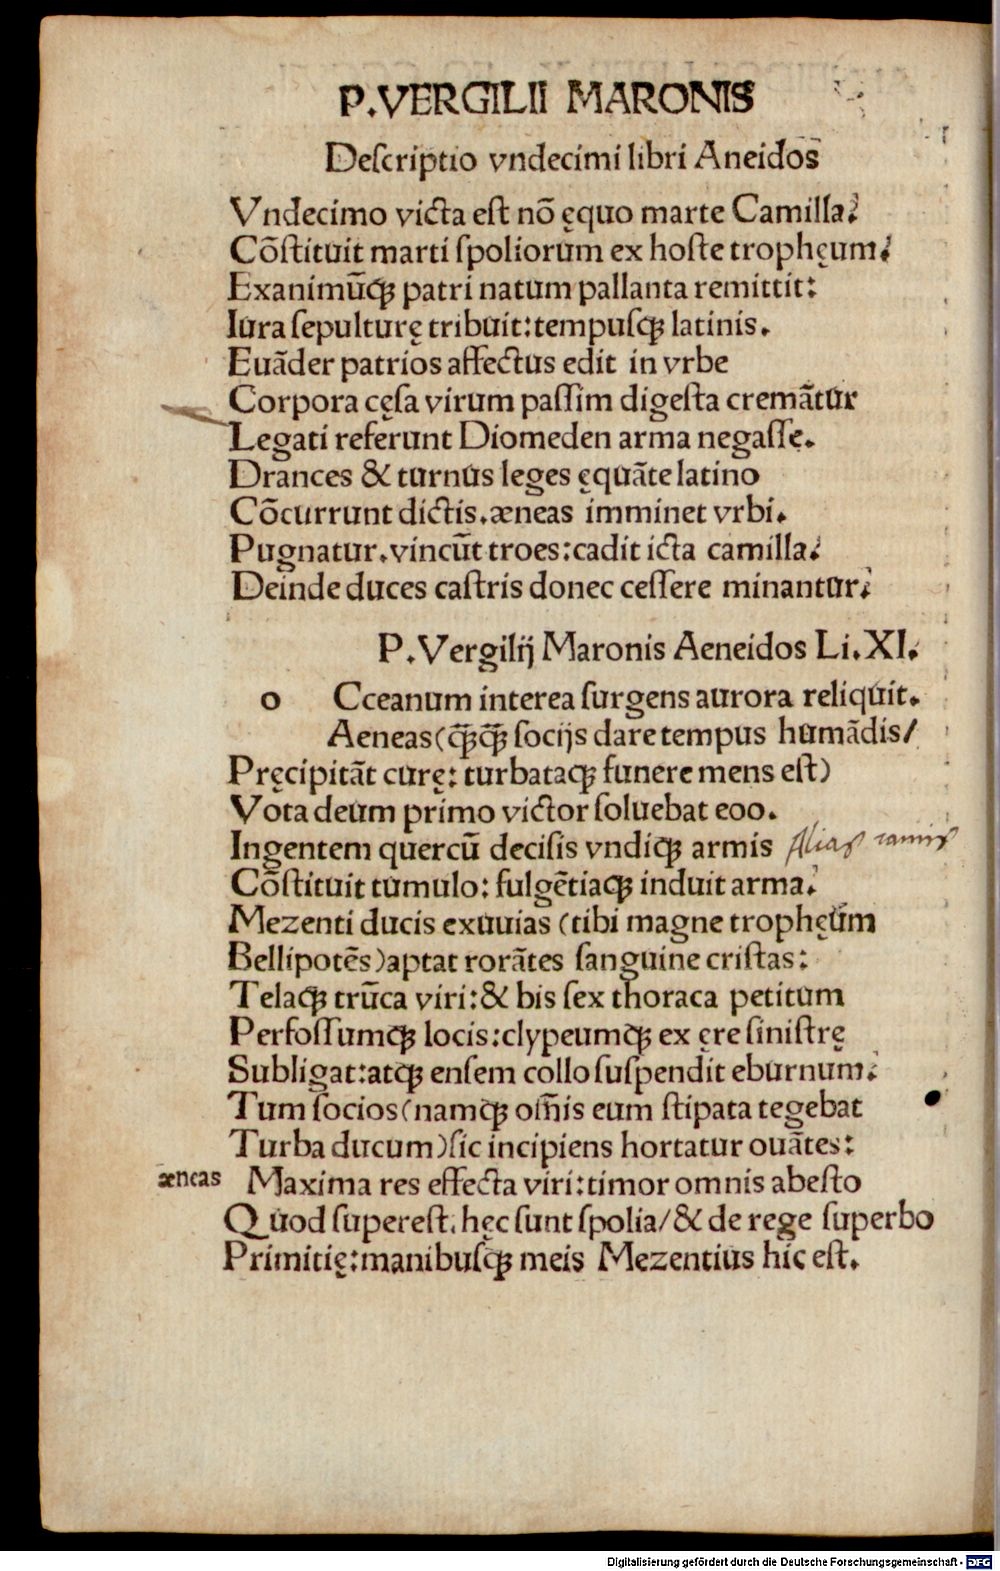 P.VERGILII MARONIS
Deſcriptio vndecimi libri Aneidos
Vndecimo victa eſt nõ ęquo marte Camilla:
Cõſtituit marti ſpoliorum ex hoſte trophęum:
Exanimũqꝫ patri natum pallanta remittit:
Iura ſepulturę tribuit:tempuſqꝫ latinis.
Euãder patrios affectus edit in vrbe
Corpora cęſa virum paſſim digeſta cremãtur
Legati referunt Diomeden arma negaſſę.
Drances & turnus leges ęquãte latino
Cõcurrunt dictis.æneas imminet vrbi.
Pugnatur.vincũt troes:cadit icta camilla:
Deinde duces caſtris donec ceſſere minantur:
P.Vergilij Maronis Aeneidos Li.XI.
o Cceanum interea ſurgens aurora reliquit.
Aeneas(qꝫ̃qꝫ̃ ſocijs dare tempus humãdis/
Pręcipitãt curę: turbataqꝫ funere mens eſt)
Vota deum primo victor ſoluebat eoo.
Ingentem quercũ deciſis vndiqꝫ armis Alias ramis
Cõſtituit tumulo: fulgẽtiaqꝫ induit arma:
Mezenti ducis exuuias (tibi magne trophęum
Bellipotẽs)aptat rorãtes ſanguine criſtas:
Telaqꝫ trũca viri:& bis ſex thoraca petitum
Perfoſſumqꝫ locis:clypeumqꝫ ex ęre ſiniſtrę
Subligat:atqꝫ enſem collo ſuſpendit eburnum:
Tum ſocios(namqꝫ om̃is eum ſtipata tegebat
Turba ducum)ſic incipiens hortatur ouãtes:
æneas Maxima res effecta viri:timor omnis abeſto
Quod ſupereſt.hęc ſunt ſpolia/& de rege ſuperbo
Primitię:manibuſqꝫ meis Mezentius hic eſt.
Digitalisierung gefördert durch die Deutsche Forschungsgemeinschaft - DFG